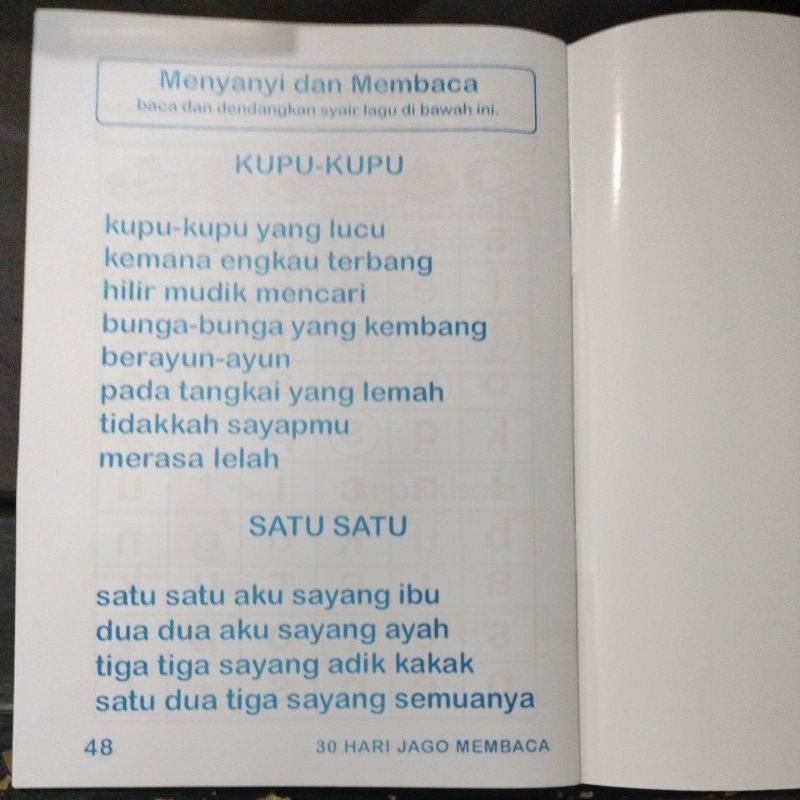 Menyanyi dan Membaca
baca dan dendangkan syair lagu di bawah ini.
KUPU-KUPU
kupu-kupu yang lucu
kemana engkau terbang
hilir mudik mencari
bunga-bunga yang kembang
berayun-ayun
pada tangkai yang lemah
tidakkah sayapmu
merasa lelah
SATU SATU
satu satu aku sayang ibu
dua dua aku sayang ayah
tiga tiga sayang adik kakak
satu dua tiga sayang semuanya
48
30 HARI JAGO MEMBACA